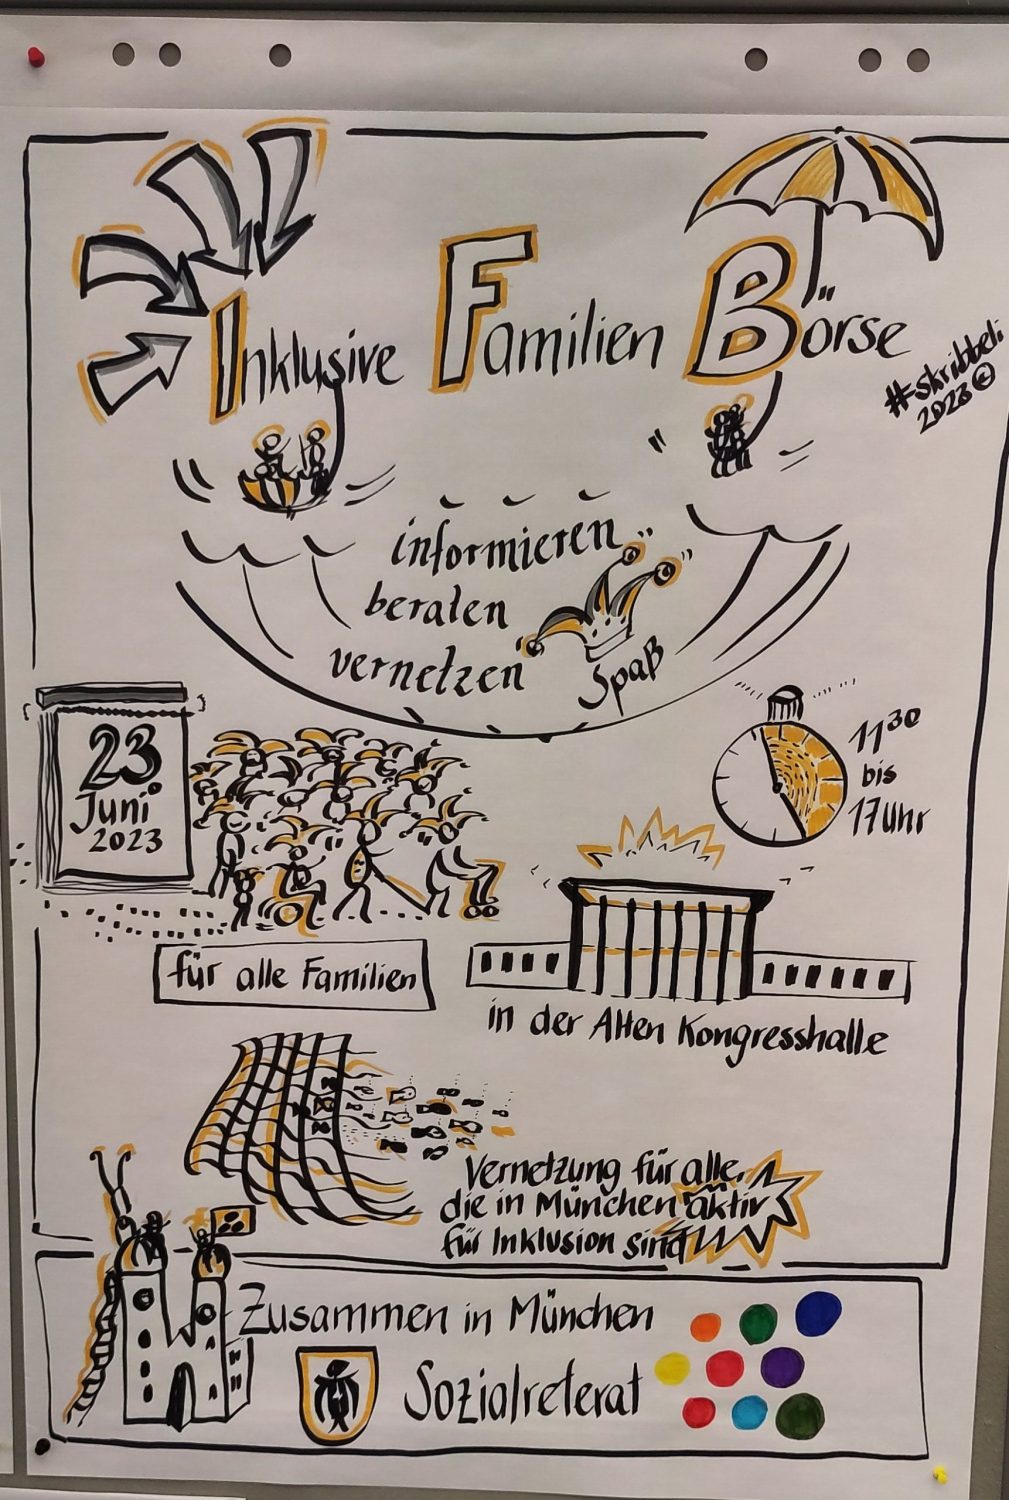 Inklusive Familien Börse
#skribbeli
2023 ©
informieren
beraten
vernetzen
Spaß
23
Juni
2023
11³⁰
bis
17 Uhr
für alle Familien
in der Alten Kongresshalle
Vernetzung für alle,
die in München aktiv
für Inklusion sind
Zusammen in München
Sozialreferat